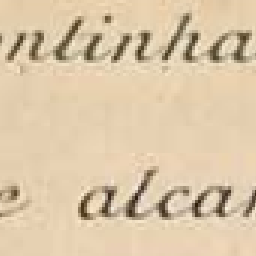 ontinha
e alcan